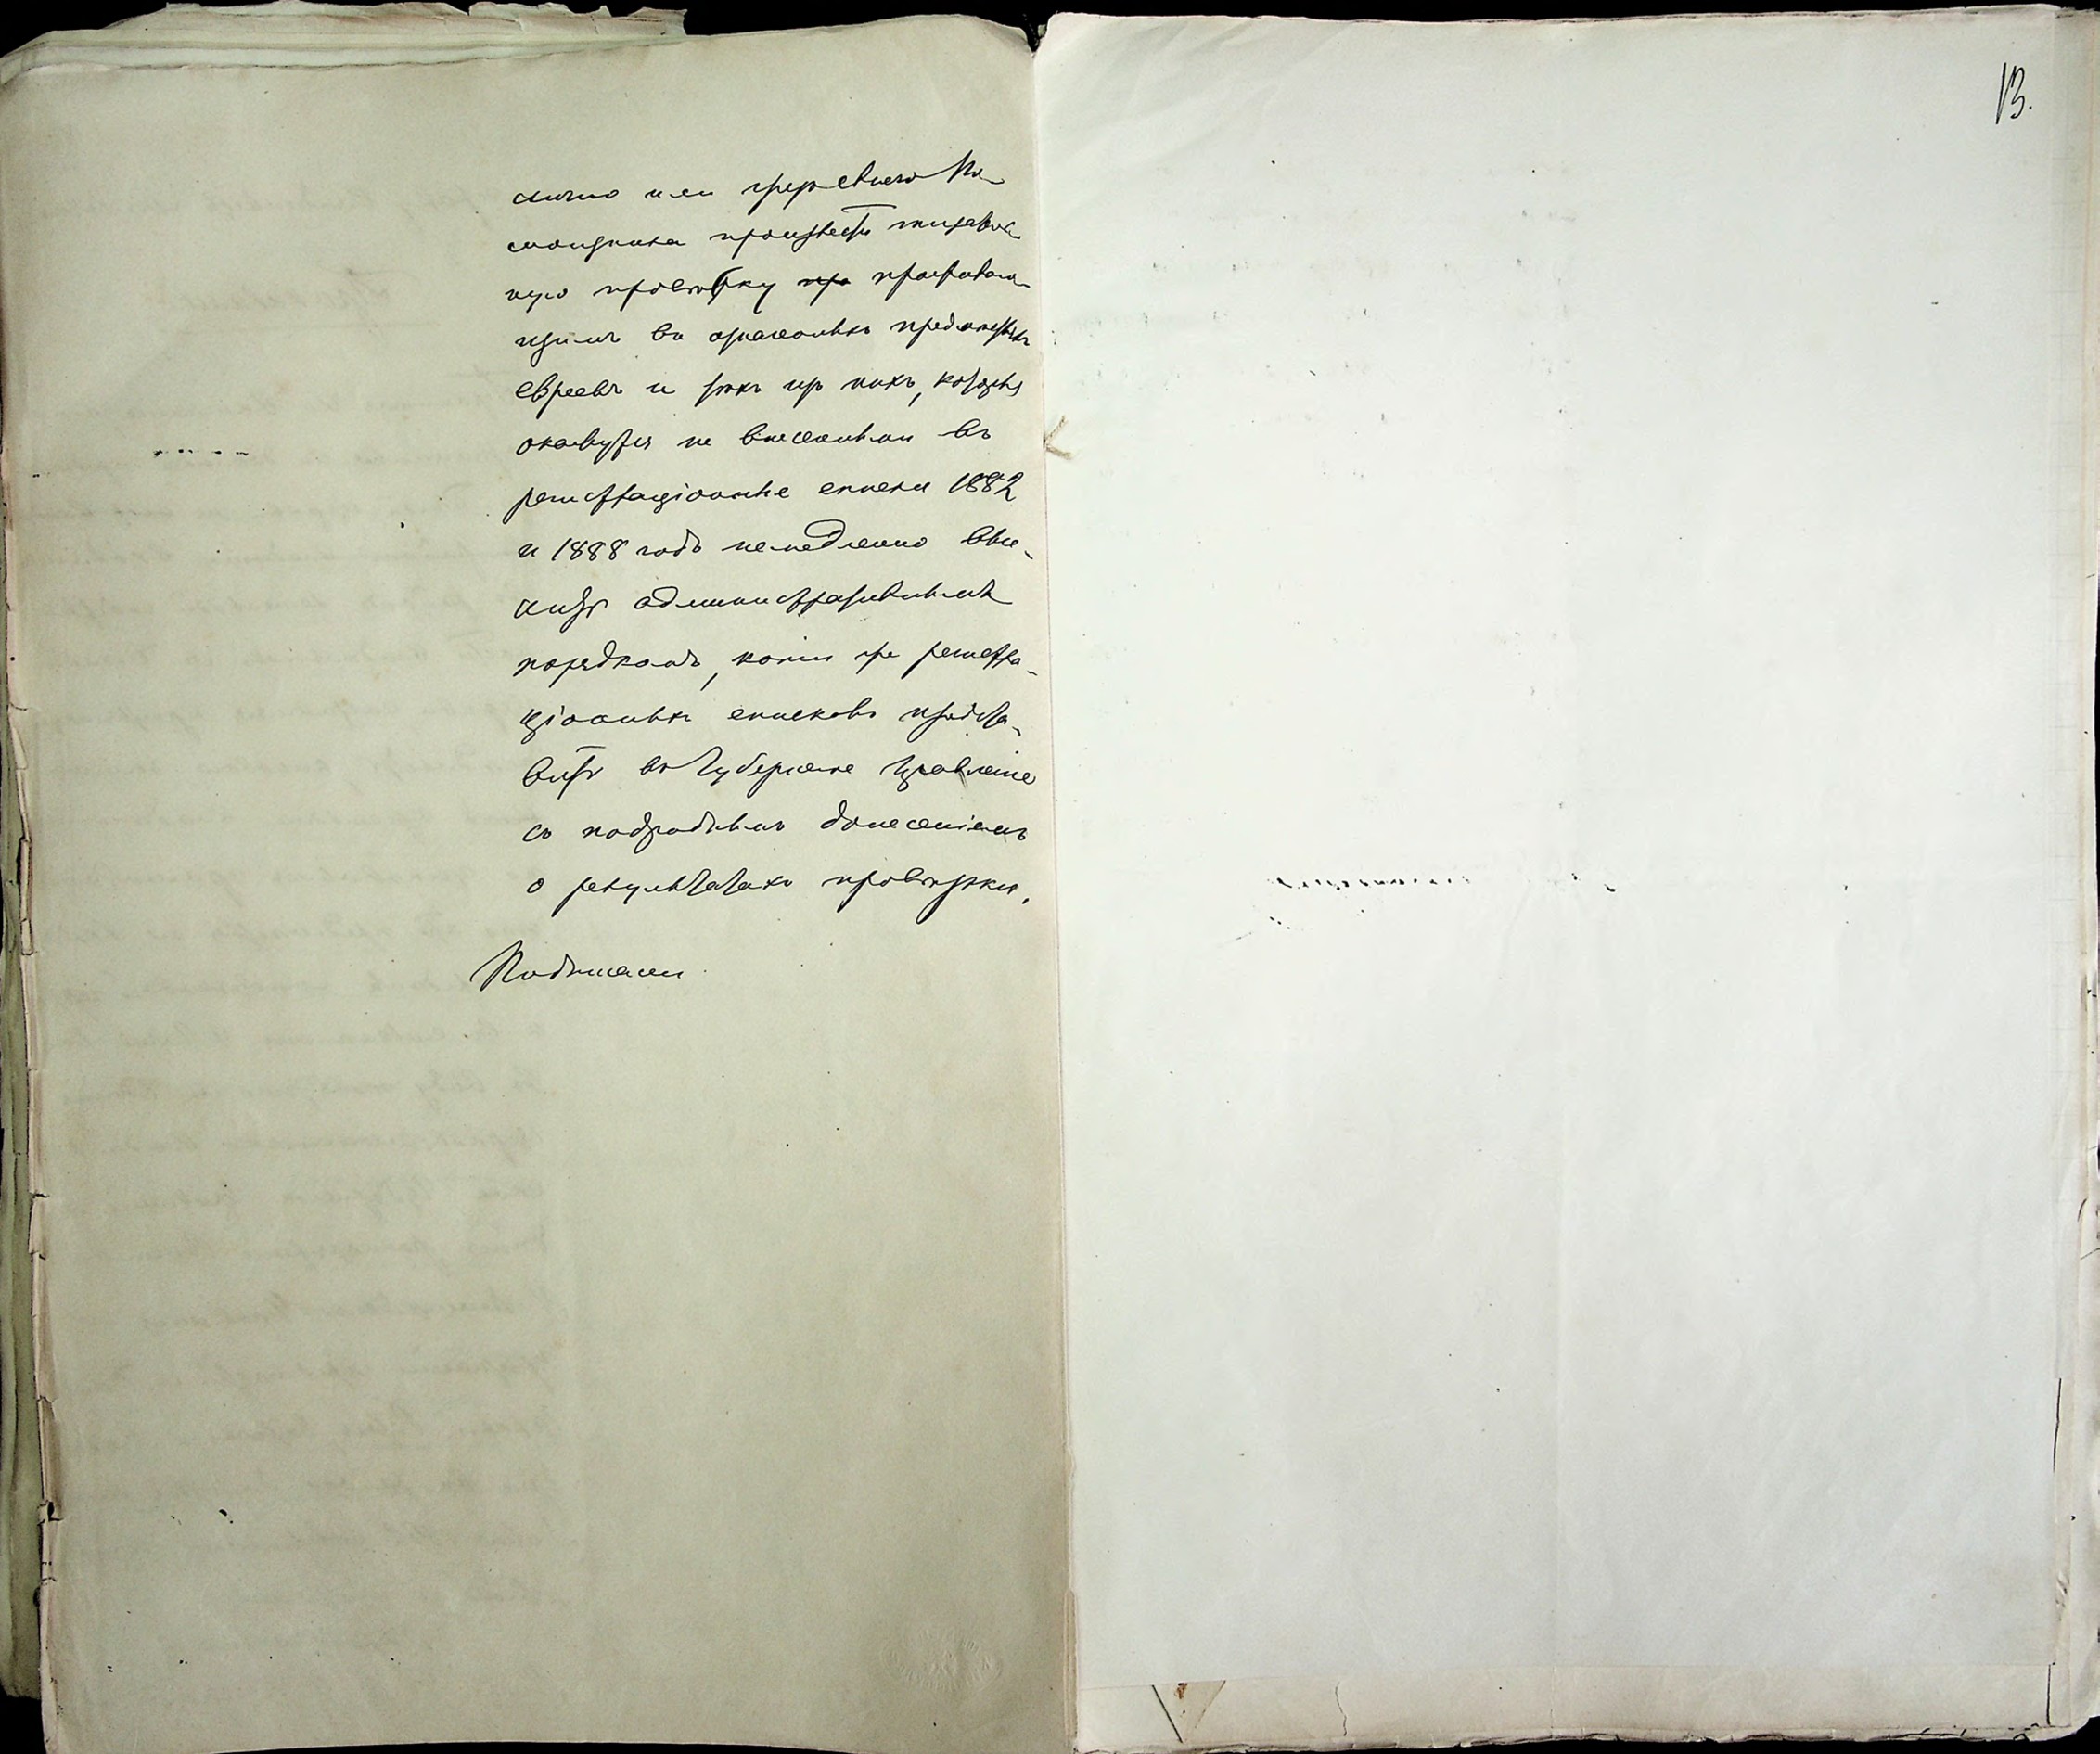 13.
лично или чрезъ своего По-
мощника произвести тщатель-
ную провѣрку про проживаю-
щимъ въ означенныхъ предмѣстьяхъ
евреевъ и тѣхъ изъ нихъ, которые
окажутся не внесенными въ
регистраціонные списки 1882
и 1888 годъ немедленно высе-
лить административнымъ
порядкомъ, копіи же регистра-
ціонныхъ списковъ предста-
вить въ Губернское Правленіе
съ подробнымъ донесеніемъ
о результатахъ провѣрки,
Подписали